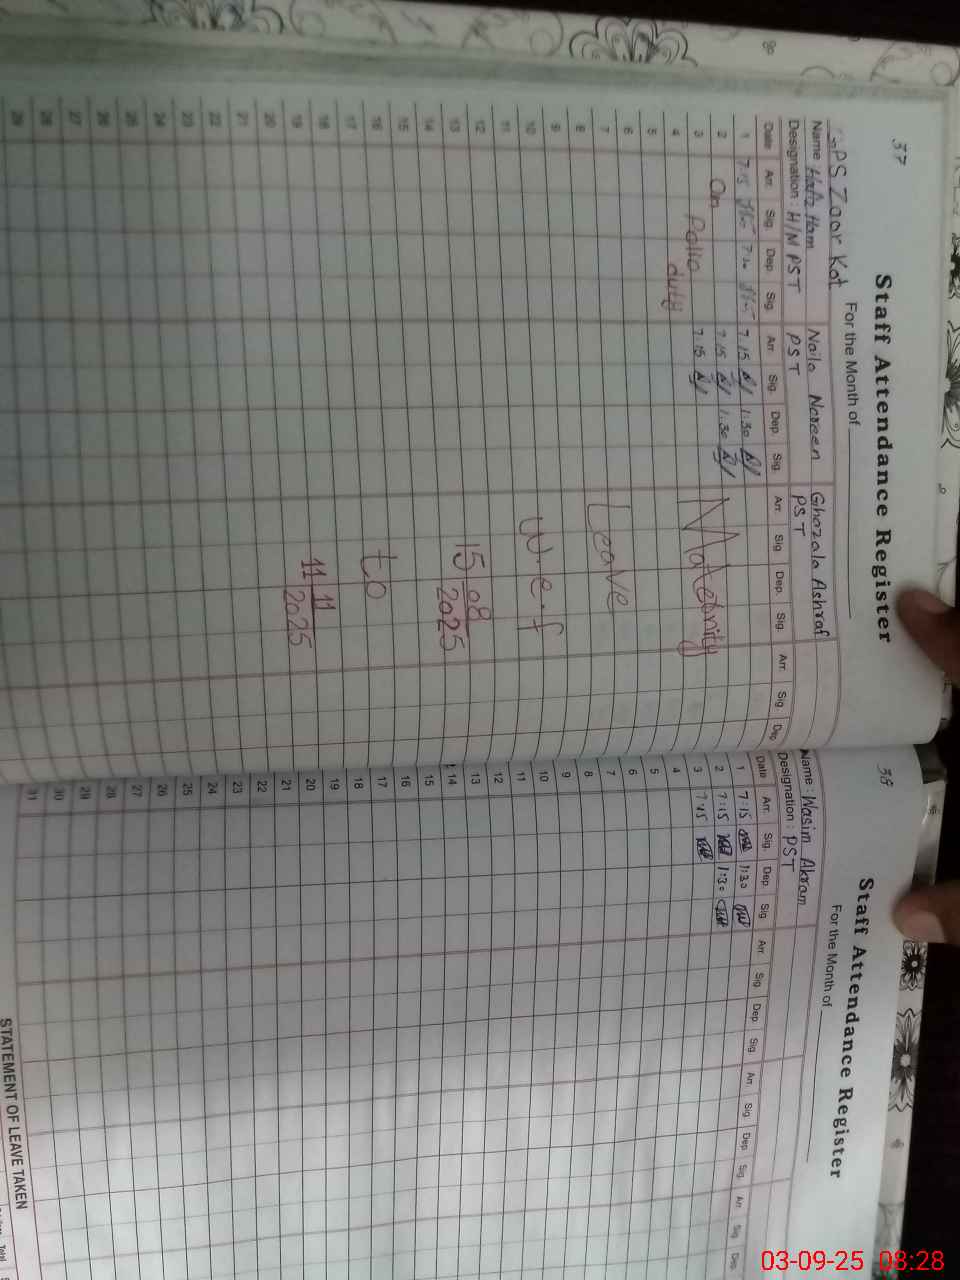 37
Staff Attendance Register
For the Month of
GPS Zoor Kot
Name Hafiz Ham Naila Noreen Ghazala Ashraf
Designation : H/M PST PST PST
Date Arr. Sig. Dep. Sig. Arr. Sig. Dep. Sig. Arr. Sig Dep. Sig. Arr. Sig Dep
1 7:15 7:15 1:30
2 On 7:15 1:30
3 Polio 7:15 Maternity
4 duty
5
6
7 Leave
8
9
10 w.e.f
11
12
13 15/08/2025
14
15
16 to
17
18
19 11/11/2025
20
21
22
23
24
25
26
27
28
29
38
Staff Attendance Register
For the Month of
Name : Wasim Akram
Designation : PST
Date Arr. Sig. Dep. Sig Arr. Sig Dep Sig. Arr. Sig Dep Sig. Arr. Sig Dep
1 7:15 1:30
2 7:15 1:30
3 7:15
4
5
6
7
8
9
10
11
12
13
14
15
16
17
18
19
20
21
22
23
24
25
26
27
28
29
30
31
STATEMENT OF LEAVE TAKEN
03-09-25 08:28